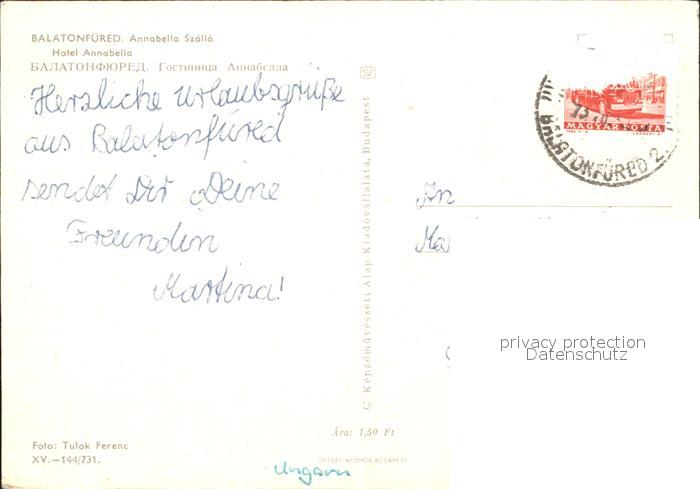 BALATONFÜRED. Annabella Szálló
Hotel Annabella
БАЛАТОНФЮРЕД. Гостиница Аннабелла
Herzliche Urlaubsgrüße
aus Balatonfüred
sendet Dir Deine
Freundin
Martina!
Foto: Tulok Ferenc
XV.—144/731.
C Képzőművészeti Alap Kiadóvállalata, Budapest
Ára: 1,50 Ft
OFFSET-NYOMDA, BUDAPEST
Ungarn
MAGYAR POSTA
BALATONFÜRED 2.
An
Ma
privacy protection
Datenschutz